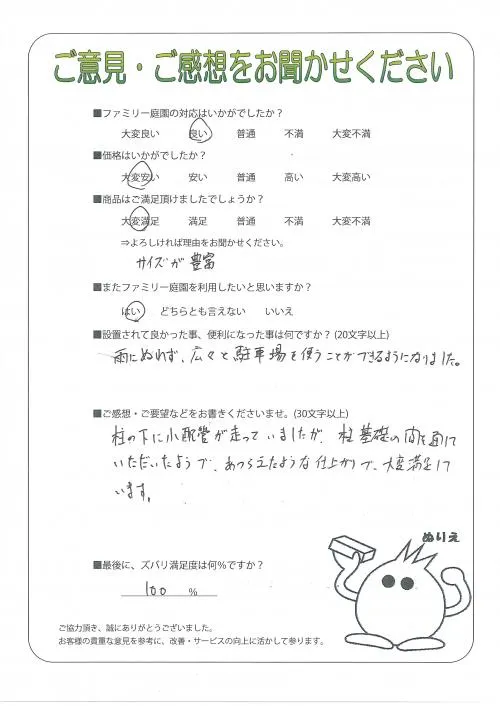 ご意見・ご感想をお聞かせください
■ファミリー庭園の対応はいかがでしたか？
大変良い 良い 普通 不満 大変不満
■価格はいかがでしたか？
大変安い 安い 普通 高い 大変高い
■商品はご満足頂けましたでしょうか？
大変満足 満足 普通 不満 大変不満
⇒よろしければ理由をお聞かせください。
サイズが豊富
■またファミリー庭園を利用したいと思いますか？
はい どちらとも言えない いいえ
■設置されて良かった事、便利になった事は何ですか？(20文字以上)
雨にぬれず、広々と駐車場を使うことができるようになりました。
■ご感想・ご要望などをお書きくださいませ。(30文字以上)
柱の下に小配管が走っていましたが、柱基礎の間を通して
いただいたようで、あつらえたような仕上がりで、大変満足して
います。
ぬりえ
■最後に、ズバリ満足度は何％ですか？
100 ％
ご協力頂き、誠にありがとうございました。
お客様の貴重な意見を参考に、改善・サービスの向上に活かして参ります。